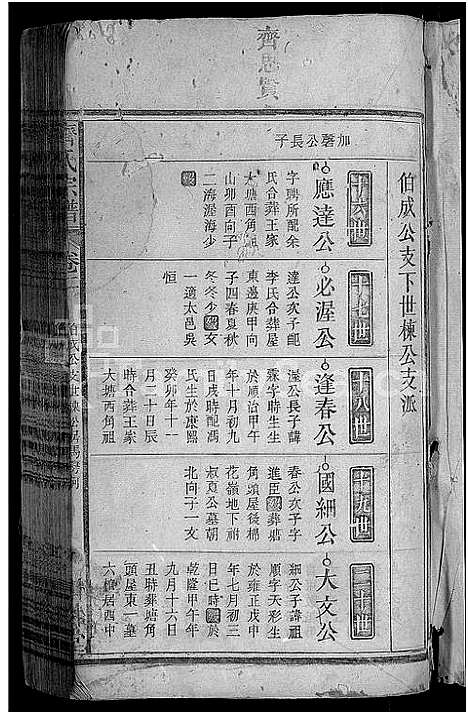 齊思賢
伯成公支下世棟公支派
加馨公長子
十六世
應達公
字聘所配余
氏合葬王家
大塘西角祖
山卯酉向子
二海渥海少

十七世
必渥公
達公次子配
李氏合葬屋
東邊庚甲向
子四春夏秋
冬冬少
女
一適太邑吳
恒
十八世
逢春公
渥公長子諱
霖字時生生
於順治甲午
年十月初九
日戌時配馮
氏生於康熙
癸卯年十一
月二十日辰
時合葬王家
大塘西角祖
十九世
國細公
春公次子字
進臣
葬蔣
角頭屋後棉
花嶺地下祔
叔夏公墓朝
北向子一支
二十世
大文公
細公子諱祖
順字天彩生
於雍正戊申
年七月初三
日巳時
於
乾隆甲午年
九月十六日
丑時葬塘角
頭屋東一墓
六棺居西申
氏宗譜
卷二
伯成公支世棟公